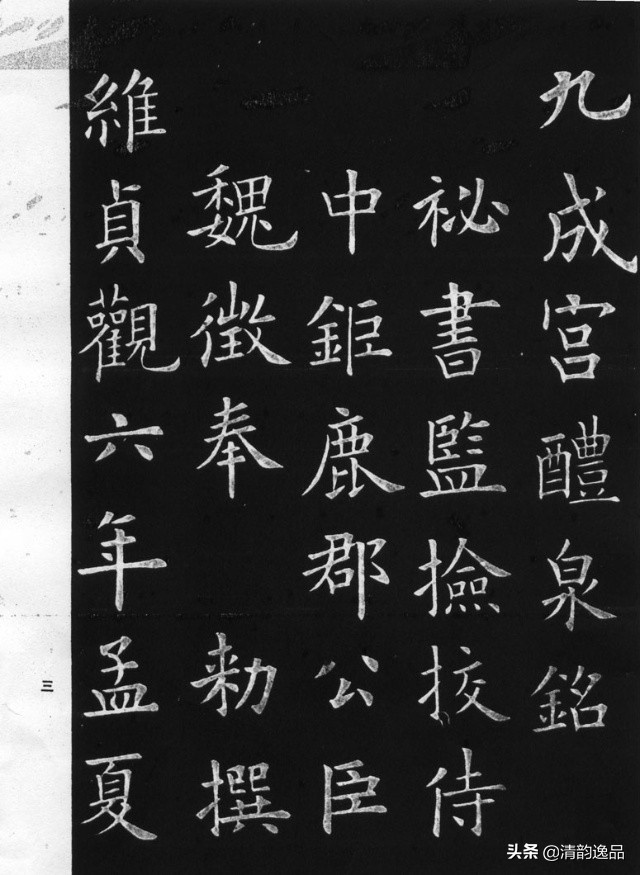 九成宫醴泉銘
祕書監撿挍侍
中鉅鹿郡公臣
魏徵奉 勑撰
維貞觀六年孟夏
三
头条 @清韵逸品